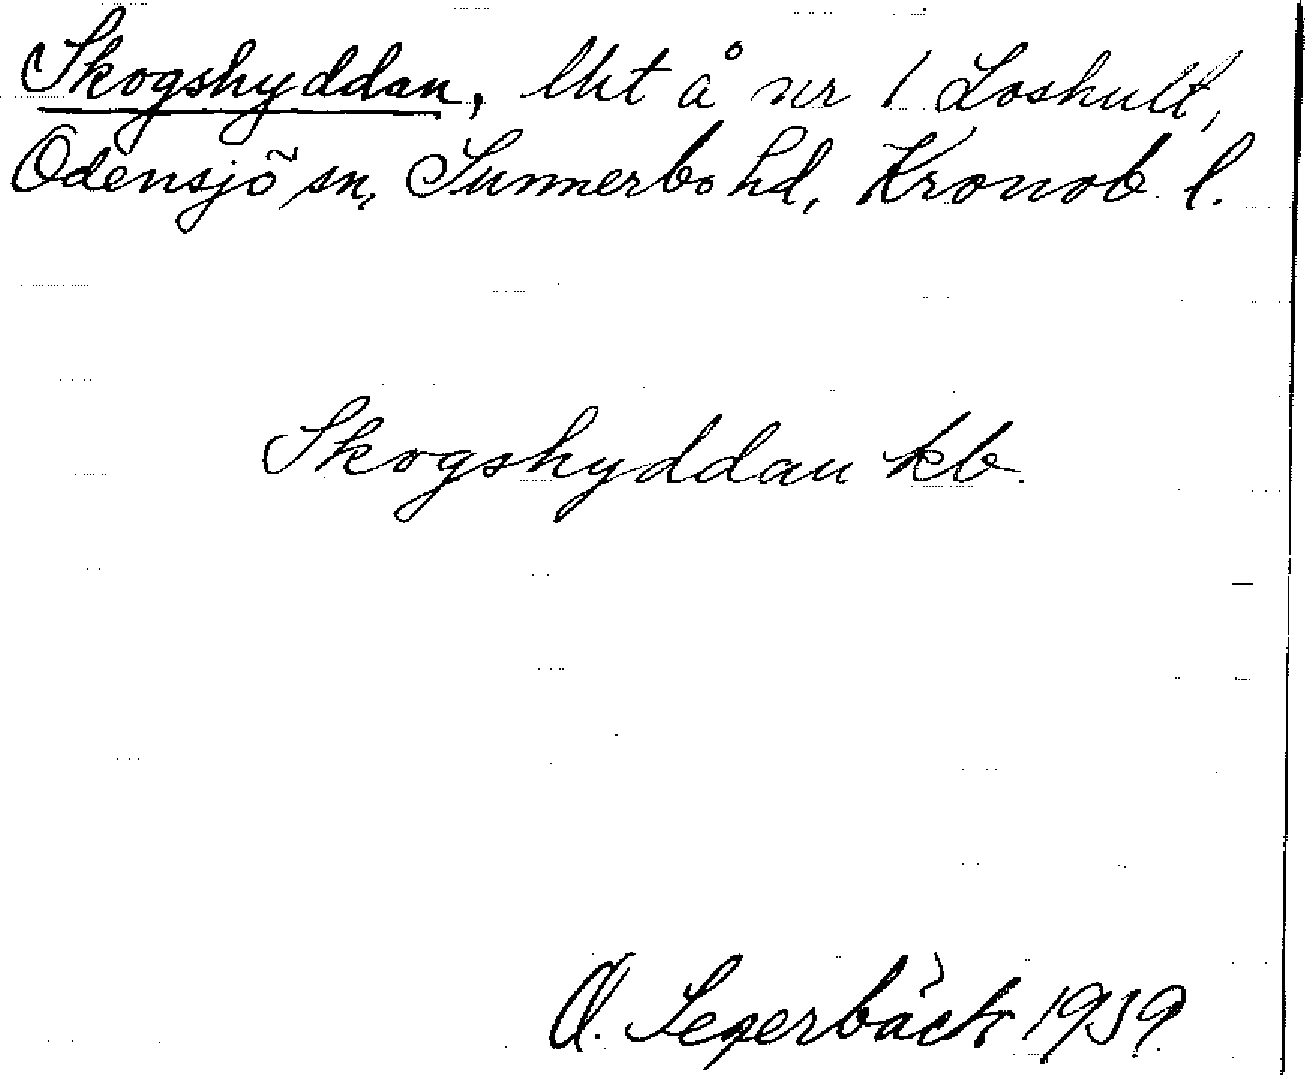 Skogshyddan, lht å nr 1 Loshult,
Odensjö sn, Sunnerbo hd, Kronob. l.
Skogshyddan kb.
O. Segerbäck 1939